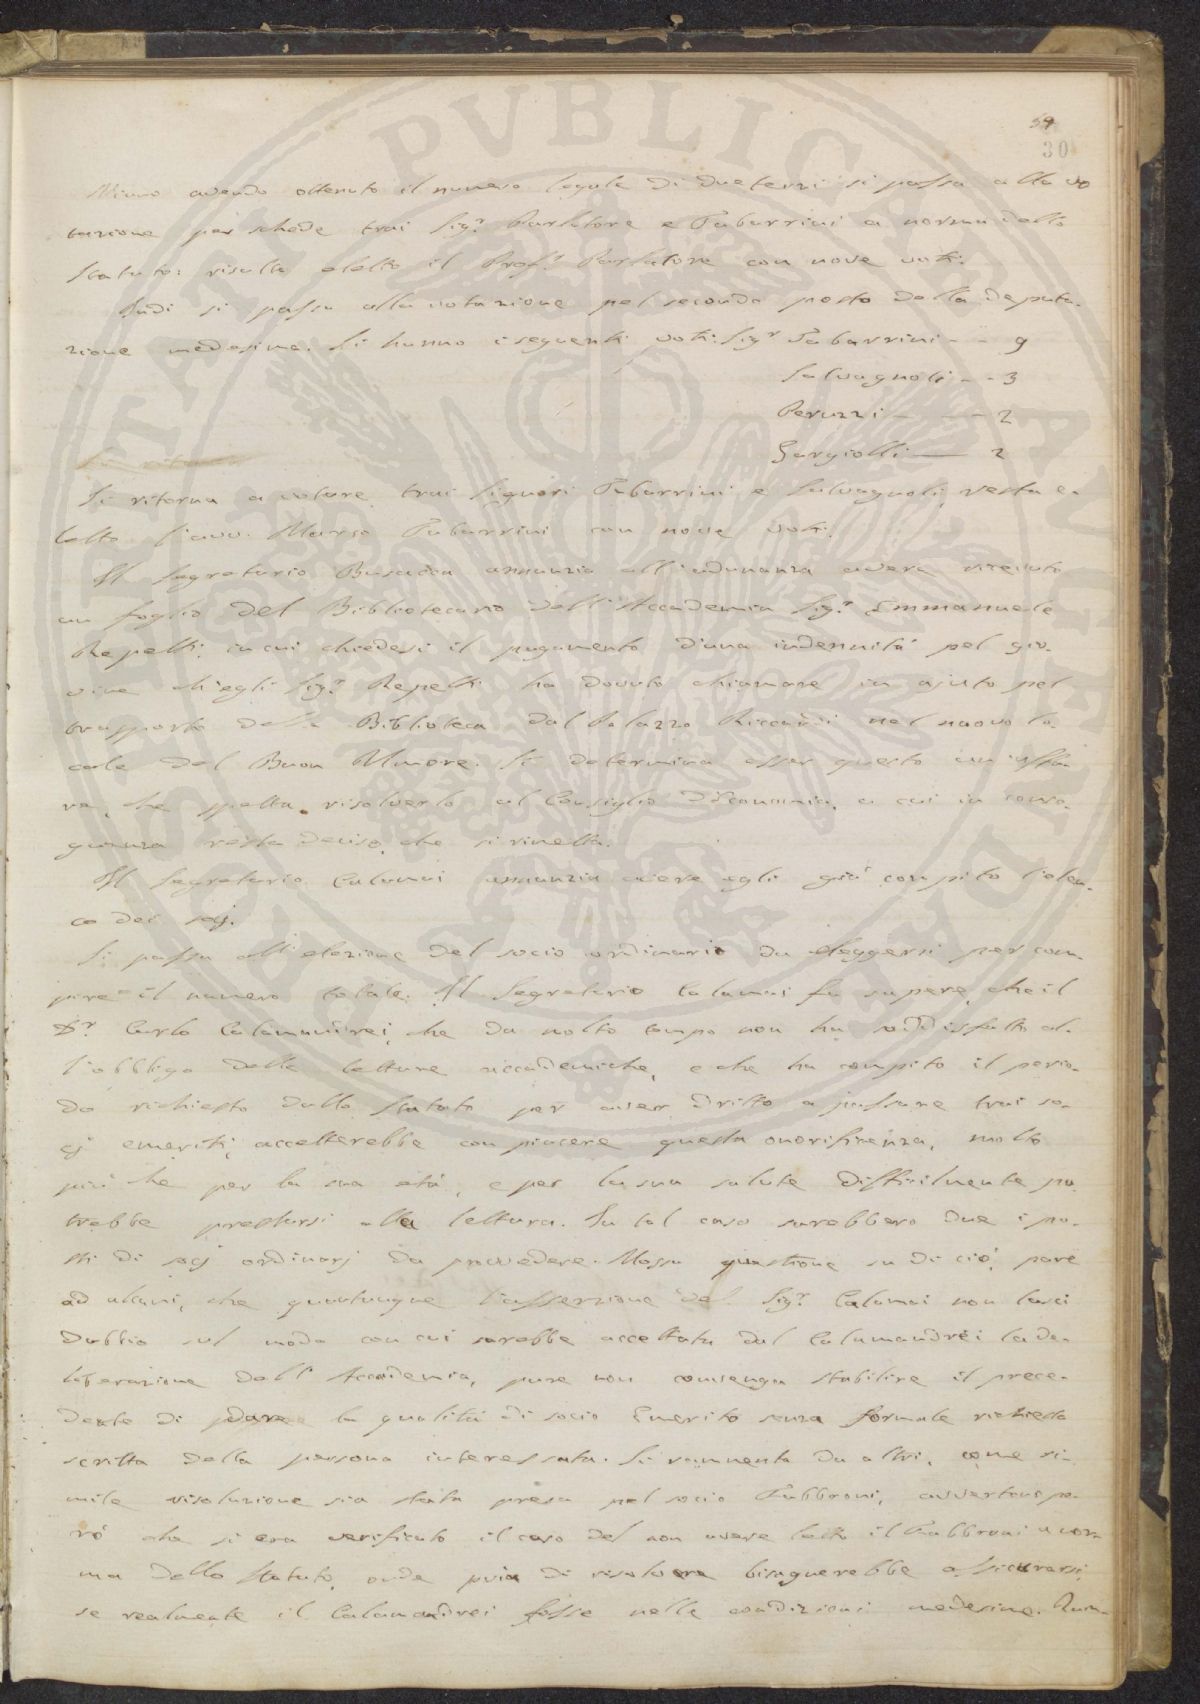 39
30
Niuno avendo ottenuto il numero legale di due terzi si passa alla vo
tazione per schede trai Sig.ri Parlatore e Tabarrini a norma dello
Statuto: risulta eletto il Prof.r Parlatore con nove voti.
Indi si passa alla votazione pel secondo posto della deputa-
zione medesima. Si hanno i seguenti voti: Sig.r Tabarrini - - 9
Salvagnoli - - 3
Peruzzi - - - 2
Gargiolli — 2
Si ritorna
Si ritorna a votare trai Signori Tabarrini e Salvagnoli, resta e-
letto l'avv. Marco Tabarrini con nove voti.
Il Segretario Busacca annunzia all'adunanza avere ricevuto
un foglio del Bibliotecario dell'Accademia Sig.r Emmanuele
Repetti, in cui chiedesi il pagamento d'una indennità pel gio-
vine ch'egli Sig.r Repetti ha dovuto chiamare in ajuto pel
trasporto della Biblioteca dal Palazzo Riccardi nel nuovo lo-
cale del Buon Umore. Si determina esser questo un affa-
re, che spetta risolverlo al Consiglio d'Economia, a cui in conse-
guenza resta deciso che si rimetta.
Il Segretario Calamai annunzia avere egli già compito l'elen-
co dei socj.
Si passa all'elezione del socio ordinario da eleggersi per com-
pire il numero totale. Il Segretario Calamai fa sapere, che il
D.r Carlo Calamandrei, che da molto tempo non ha soddisfatto al-
l'obbligo delle letture accademiche, e che ha compito il perio-
do richiesto dallo Statuto per aver dritto a passare trai so-
cj emeriti, accetterebbe con piacere questa onorificenza, molto
più che per la sua età, e per la sua salute difficilmente po-
trebbe prestarsi alla lettura. In tal caso sarebbero due i po-
sti di socj ordinarj da provvedere. Mossa questione su di ciò, pare
ad alcuni, che quantunque l'asserzione del Sig.r Calamai non lasci
dubbio sul modo con cui sarebbe accettata dal Calamandrei la de-
liberazione dell'Accademia, pure non convenga stabilire il prece-
dente di dare la qualità di socio Emerito senza formale richiesta
scritta della persona interessata. Si rammenta da altri, come si-
mile risoluzione sia stata presa pel socio Fabbroni, avvertono pe-
rò che si era verificato il caso del non avere letto il Fabbroni a nor-
ma dello Statuto, onde pria di risolvere bisognerebbe assicurarsi,
se realmente il Calamandrei fosse nelle condizioni medesime.